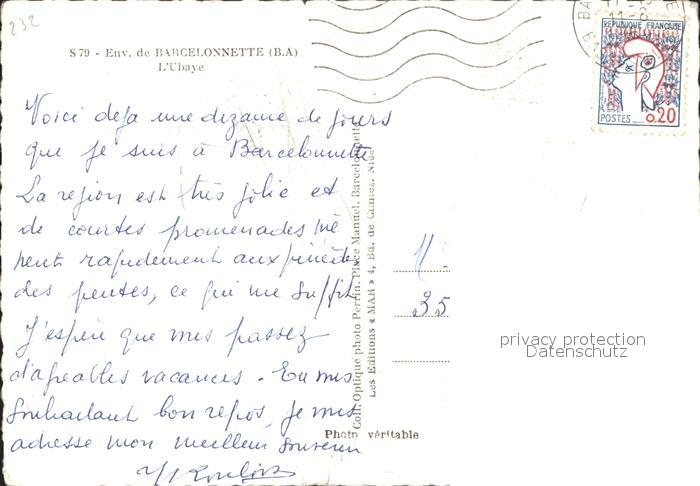 232
S 79 - Env. de BARCELONNETTE (B.A)
L'Ubaye
RÉPUBLIQUE FRANÇAISE
POSTES
0,20
Voici deja une dizaine de jours
que je suis à Barcelonnette
La region est très jolie et
de courtes promenades me
rapidement aux
des pentes, ce qui me suffit
J'espère que mes passez
d'agreables vacances. En mes
souhaitant bon repos, je mes
adresse mon meilleur souvenir
35
Coll. Optique photo Perrin. Place Manuel. Barcelonnette
Les Editions « MAR » 4, Bd. de Cimiez. Nice
Photo véritable
privacy protection
Datenschutz